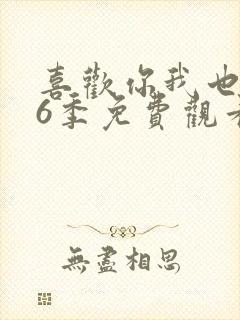 喜歡你我也
6季免費觀
無盡相思